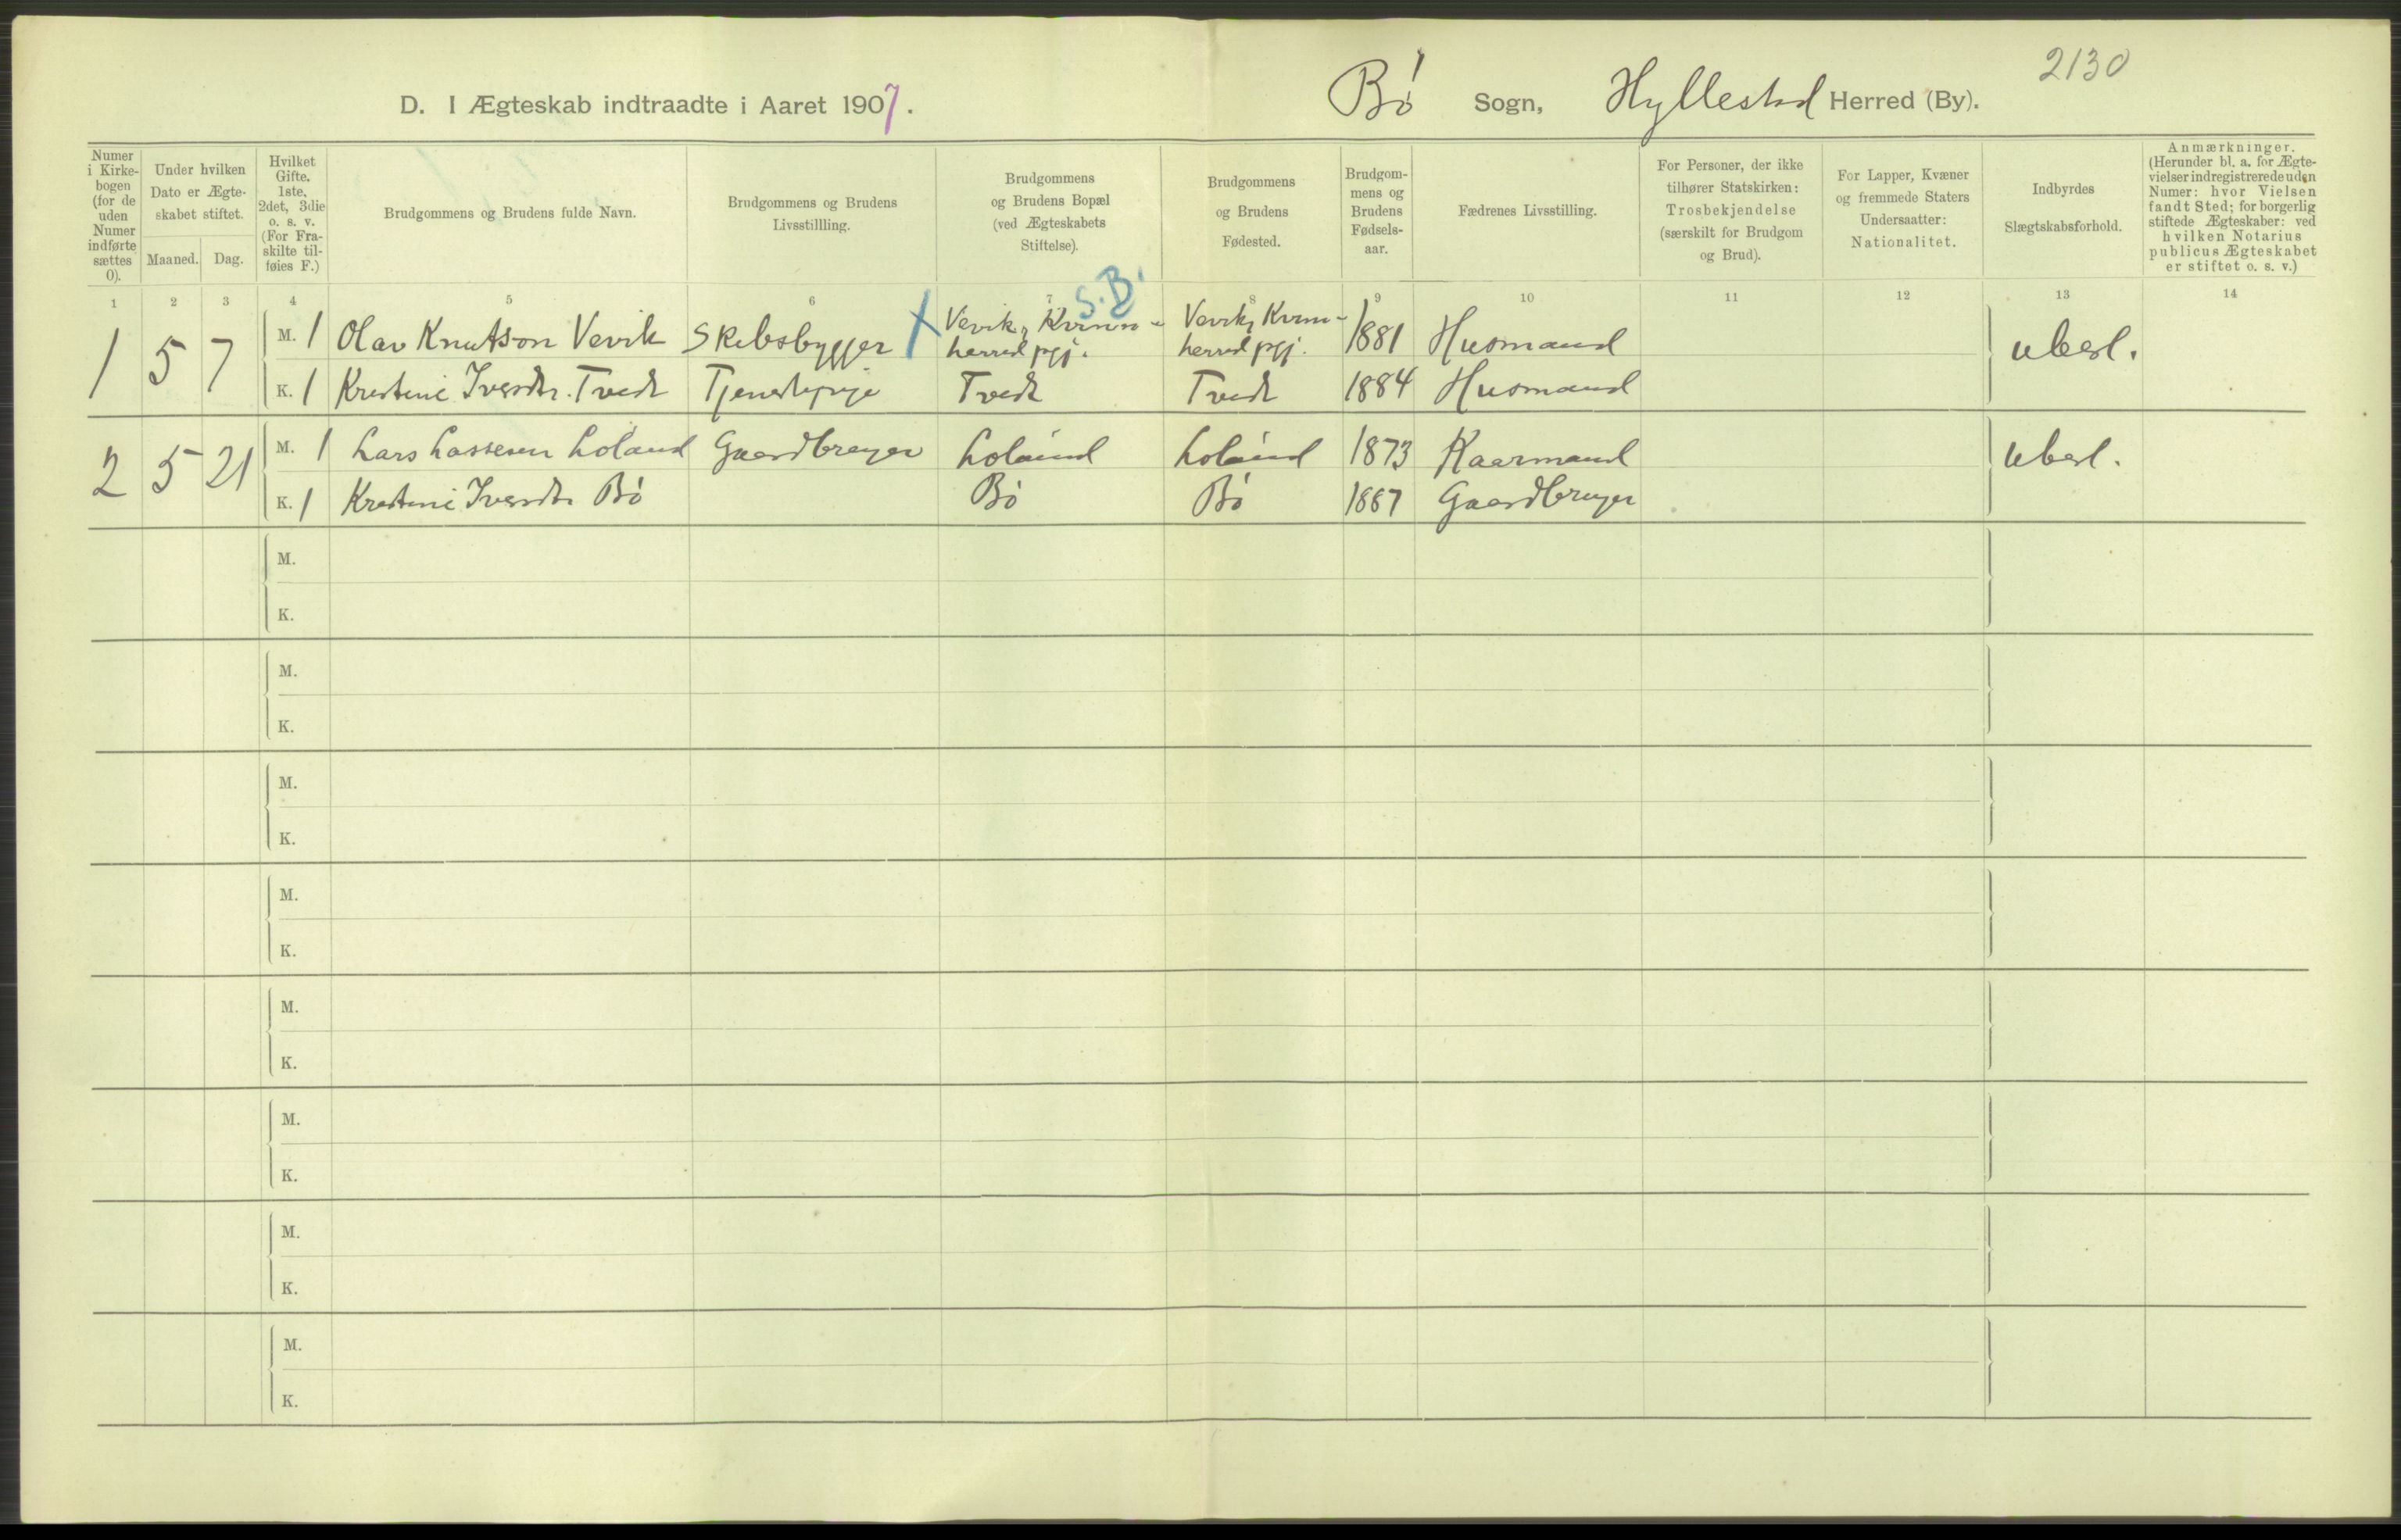 2130
D. I Ægteskab indtraadte i Aaret 1907. Bø Sogn, Hyllestad Herred (By).
Numer i Kirkebogen (for de uden Numer indførte sættes 0).
Under hvilken Dato er Ægteskabet stiftet.
Maaned. Dag.
Hvilket Gifte. 1ste, 2det, 3die o. s. v. (For Fraskilte tilføies F.)
Brudgommens og Brudens fulde Navn.
Brudgommens og Brudens Livsstillling.
Brudgommens og Brudens Bopæl (ved Ægteskabets Stiftelse).
Brudgommens og Brudens Fødested.
Brudgommens og Brudens Fødselsaar.
Fædrenes Livsstilling.
For Personer, der ikke tilhører Statskirken: Trosbekjendelse (særskilt for Brudgom og Brud).
For Lapper, Kvæner og fremmede Staters Undersaatter: Nationalitet.
Indbyrdes Slægtskabsforhold.
Anmærkninger. (Herunder bl. a. for Ægtevielser indregistrerede uden Numer: hvor Vielsen fandt Sted; for borgerlig stiftede Ægteskaber: ved hvilken Notarius publicus Ægteskabet er stiftet o. s. v.)
1 2 3 4 5 6 7 8 9 10 11 12 13 14
S.B.
1 5 7 M. 1 Olav Knutson Vevik Skibsbygger X Vevik, Kvinnherred pgj. Vevik, Kvinnherred pgj. 1881 Husmand ubesl.
K. 1 Krestine Iversdtr. Tvedt Tjenestepige Tvedt Tvedt 1884 Husmand
2 5 21 M. 1 Lars Lassesen Løland Gaardbruger Løland Løland 1873 Kaarmand ubesl.
K. 1 Krestine Iversdtr Bø Bø Bø 1887 Gaardbruger
M.
K.
M.
K.
M.
K.
M.
K.
M.
K.
M.
K.
M.
K.
M.
K.